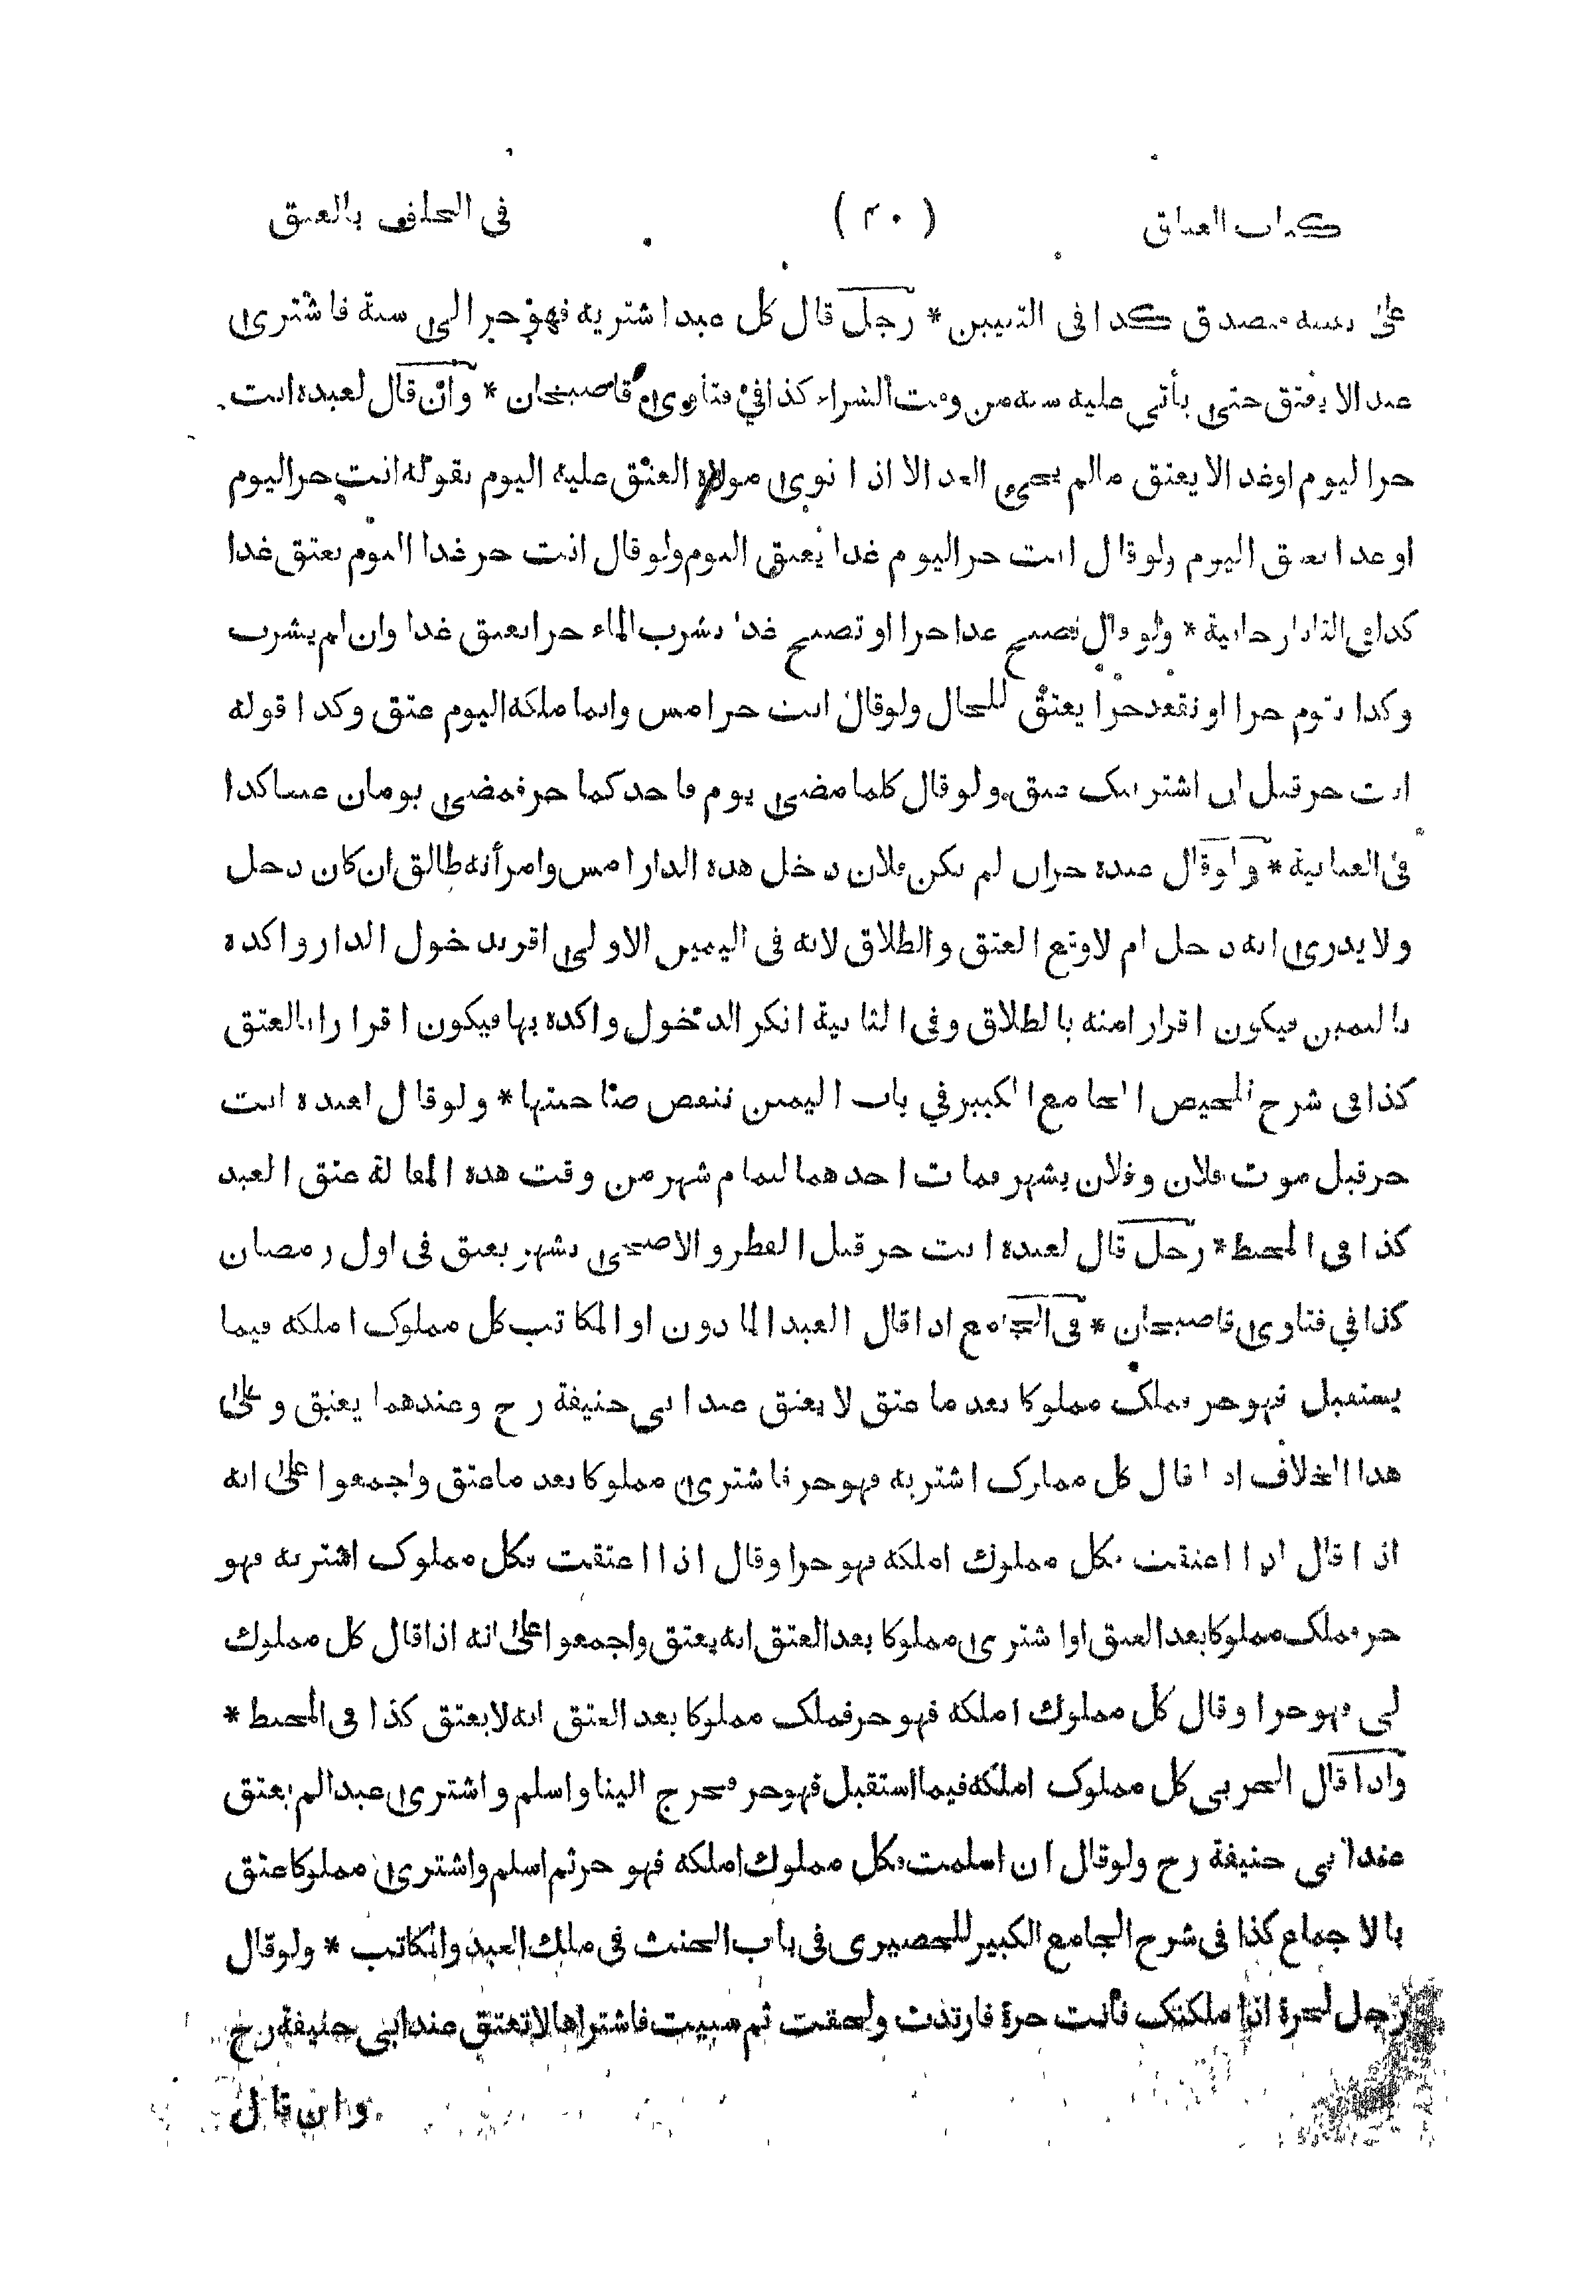 كتاب العتاق (٣٠) في الحلف بالعتق
على نفسه مصدق كذا في التبيين * رجل قال كل عبد اشتريه فهو حر الى سنة فاشترى
عبدا لا يعتق حتى يأتي عليه سنة من وقت الشراء كذا في فتاوى قاضيخان * وان قال لعبده انت
حر اليوم او غدا لا يعتق مالم يجئ الغد الا اذا نوى مولاه العتق عليه اليوم بقوله انت حر اليوم
او غدا يعتق اليوم ولو قال انت حر اليوم غدا يعتق اليوم ولو قال انت حر غدا اليوم يعتق غدا
كذا في التاتارخانية * ولو قال تصبح غدا حرا او تصبح غدا تشرب الماء حرا يعتق غدا وان لم يشرب
وكذا تقوم حرا او تقعد حرا يعتق للحال ولو قال انت حر امس وانما ملكه اليوم عتق وكذا قوله
انت حر قبل ان اشتريتك عتق ولو قال كلما مضى يوم فاحدكما حر فمضى يومان عتقا كذا
في العتابية * ولو قال عبده حر ان لم يكن فلان دخل هذه الدار امس وامرأته طالق ان كان دخل
ولا يدرى انه دخل ام لا وقع العتق والطلاق لانه في اليمين الاولى اقر بدخول الدار واكده
باليمين فيكون اقرارا منه بالطلاق وفي الثانية انكر الدخول واكده بها فيكون اقرارا بالعتق
كذا في شرح تلخيص الجامع الكبير في باب اليمين تنقض صاحبتها * ولو قال لعبده انت
حر قبل موت فلان وفلان بشهر فمات احدهما لتمام شهر من وقت هذه المقالة عتق العبد
كذا في المحيط * رجل قال لعبده انت حر قبل الفطر والاضحى بشهر يعتق في اول رمضان
كذا في فتاوى قاضيخان * في الجامع اذا قال العبد المأذون او المكاتب كل مملوك املكه فيما
يستقبل فهو حر فملك مملوكا بعد ما عتق لا يعتق عند ابي حنيفة رح وعندهما يعتق وعلى
هذا الخلاف اذا قال كل مملوك اشتريه فهو حر فاشترى مملوكا بعد ما عتق واجمعوا على انه
اذا قال اذا اعتقت فكل مملوك املكه فهو حر او قال اذا اعتقت فكل مملوك اشتريه فهو
حر فملك مملوكا بعد العتق او اشترى مملوكا بعد العتق انه يعتق واجمعوا على انه اذا قال كل مملوك
لي فهو حر او قال كل مملوك املكه فهو حر فملك مملوكا بعد العتق انه لا يعتق كذا في المحيط *
واذا قال الحربي كل مملوك املكه فيما استقبل فهو حر فخرج الينا واسلم واشترى عبدا لم يعتق
عند ابي حنيفة رح ولو قال ان اسلمت فكل مملوك املكه فهو حر ثم اسلم واشترى مملوكا عتق
بالاجماع كذا في شرح الجامع الكبير للحصيري في باب الحنث في ملك العبد والمكاتب * ولو قال
رجل لحرة اذا ملكتك فانت حرة فارتدت ولحقت ثم سبيت فاشتراها لا تعتق عند ابي حنيفة رح
وان قال